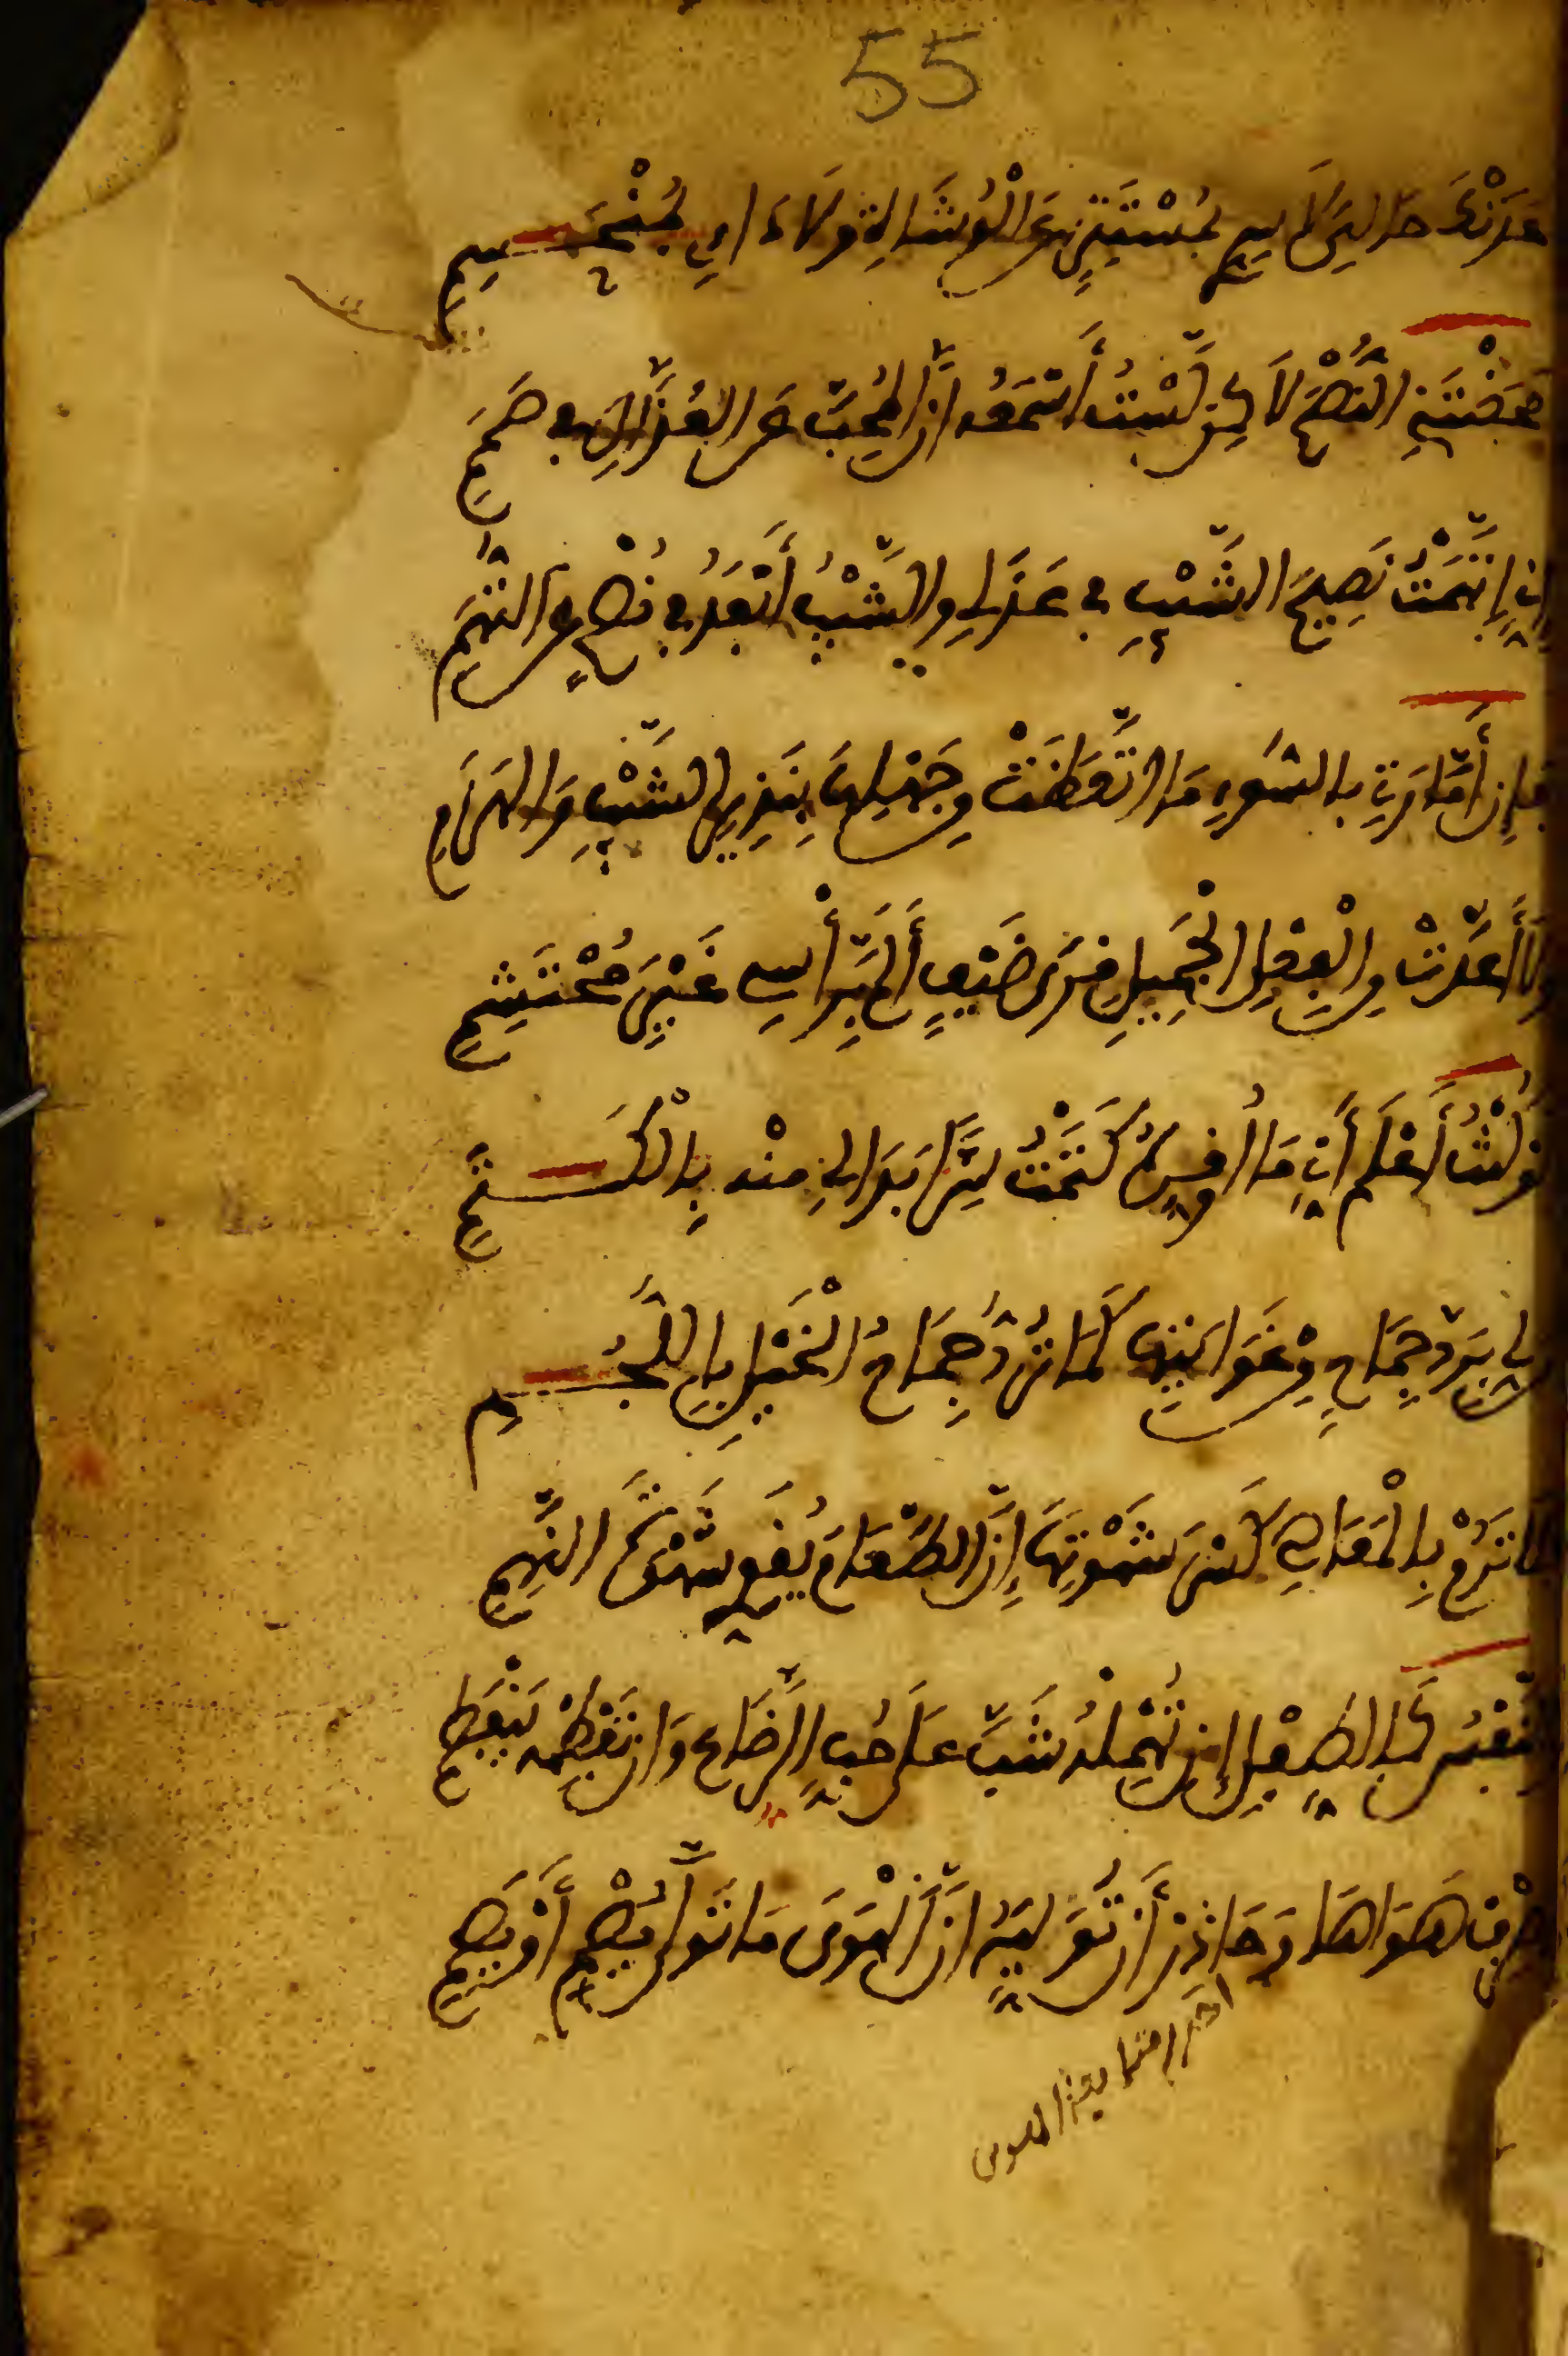 55
عَدَتْكَ حَالِيَ لَا سِرِّي بِمُسْتَتِرٍ عَنِ الْوُشَاةِ وَلَا دَائِي بِمُنْحَسِمِ
مَحَضْتَنِي النُّصْحَ لَاكِن لَّسْتُ أَسْمَعُهُ إِنَّ الْمُحِبَّ عَنِ الْعُذَّالِ فِي صَمَمِ
إِنِّي إِتَّهَمْتُ نَصِيحَ الشَّيْبِ فِي عَذَلِي وَالشَّيْبُ أَبْعَدُ فِي نُصْحٍ عَنِ التُّهَمِ
فَإِنَّ أَمَّارَتِي بِالسُّوءِ مَا اتَّعَظَتْ مِن جَهْلِهَا بِنَذِيرِ الشَّيْبِ وَالْهَرَمِ
وَلَا أَعَدَّتْ مِنَ الْفِعْلِ الْجَمِيلِ قِرَى ضَيْفٍ أَلَمَّ بِرَأْسِي غَيْرَ مُحْتَشِمِ
لَوْ كُنْتُ أَعْلَمُ أَنِّي مَا أُوَقِّرُهُ كَتَمْتُ سِرًّا بَدَا لِي مِنْهُ بِالْكَتَمِ
مَن لِّي بِرَدِّ جِمَاحٍ مِّنْ غَوَايَتِهَا كَمَا يُرَدُّ جِمَاحُ الْخَيْلِ بِاللُّجُمِ
فَلَا تَرُمْ بِالْمَعَاصِي كَسْرَ شَهْوَتِهَا إِنَّ الطَّعَامَ يُقَوِّي شَهْوَةَ النَّهِمِ
وَالنَّفْسُ كَالطِّفْلِ إِن تُهْمِلْهُ شَبَّ عَلَى حُبِّ الرَّضَاعِ وَإِن تَفْطِمْهُ يَنْفَطِمِ
فَاصْرِفْ هَوَاهَا وَحَاذِرْ أَن تُوَلِّيَهُ إِنَّ الْهَوَى مَا تَوَلَّى يُصْمِ أَوْ يَصِمِ